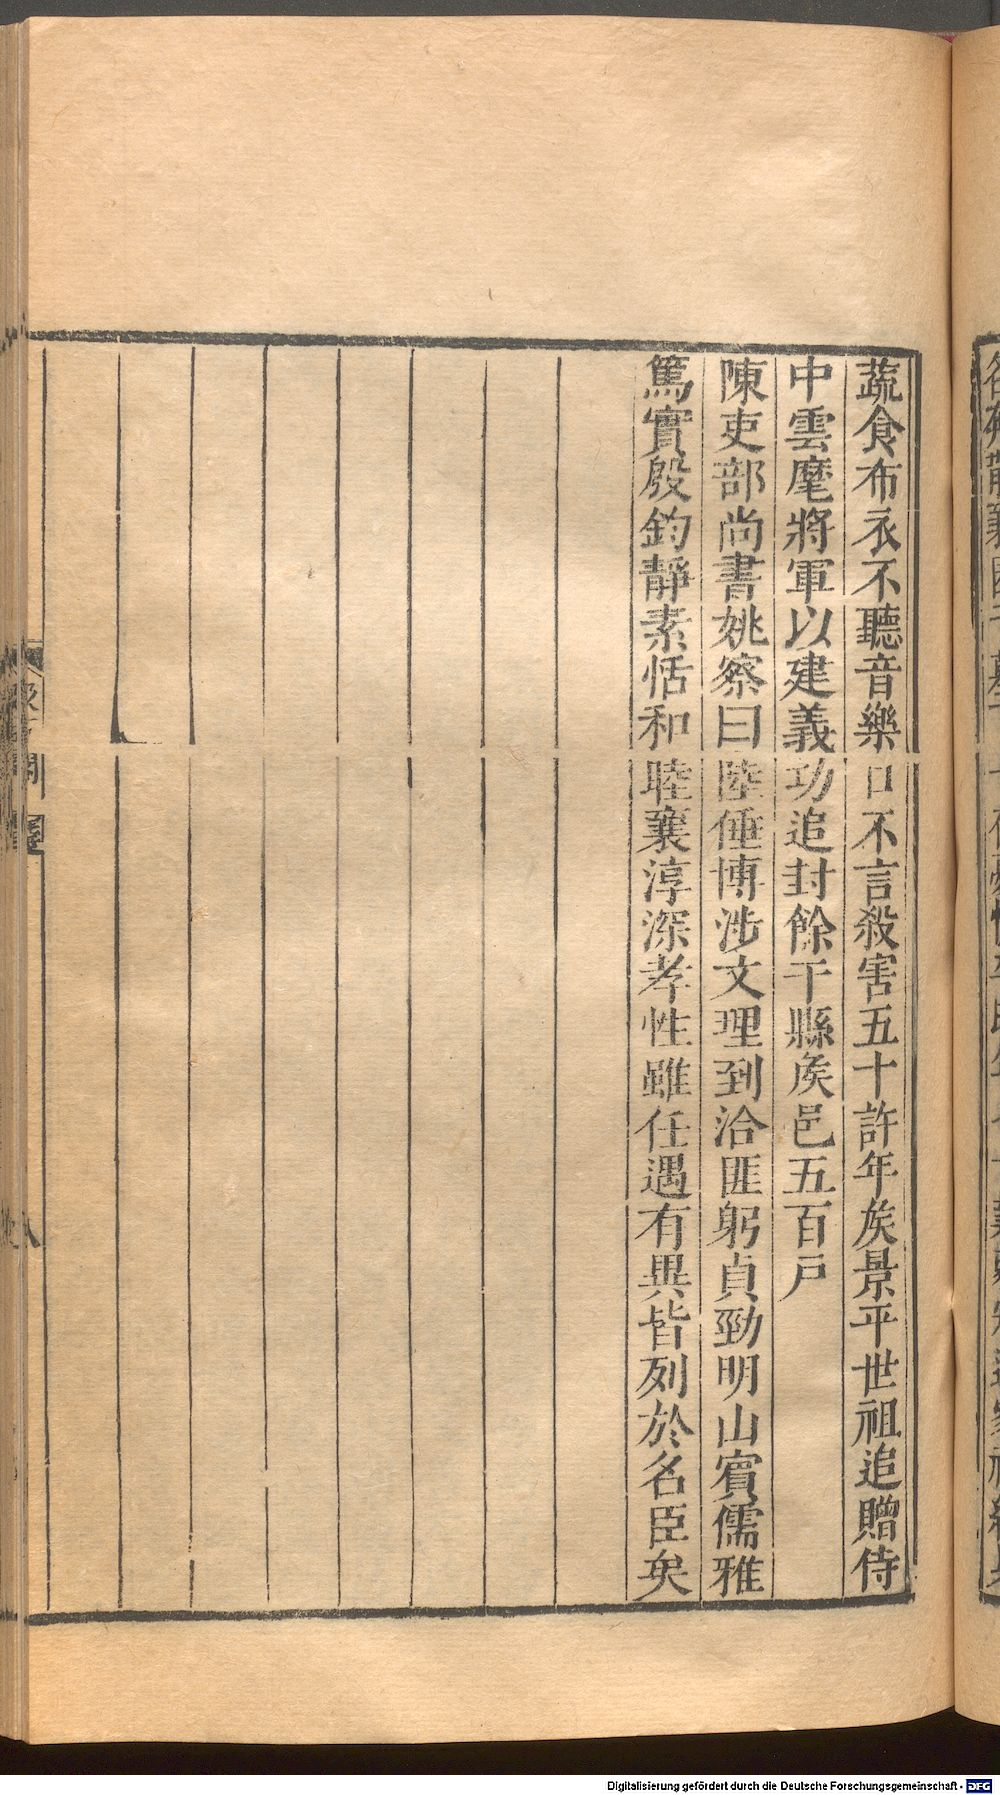 蔬食布衣不聽音樂口不言殺害五十許年矦景平世祖追贈侍
中雲麾將軍以建義功追封餘干縣矦邑五百戸
陳吏部尚書姚察曰陸倕博涉文理到洽匪躬貞勁明山賓儒雅
篤實殷鈞靜素恬和陸襄淳深孝性雖任遇有異皆列於名臣矣
Digitalisierung gefördert durch die Deutsche Forschungsgemeinschaft - DFG